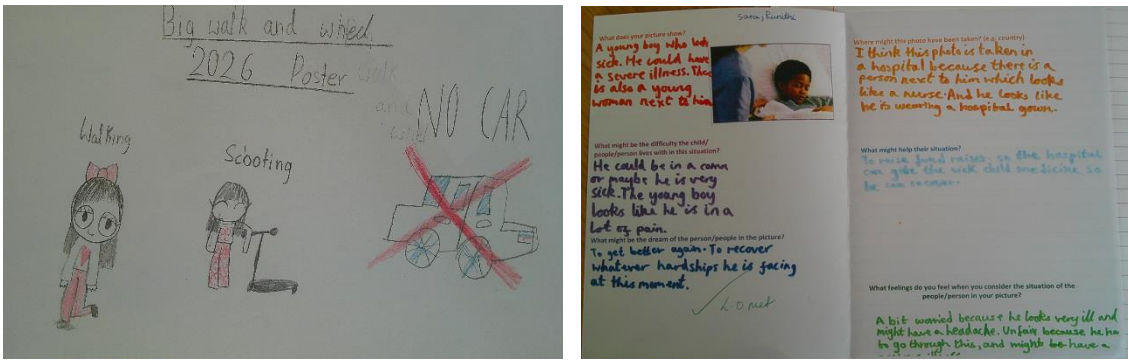 Big walk and wheel
2026 Poster
walk
and
NO CAR
Walking
Scooting
Sara,
What does your picture show?
A young boy who look
sick. He could have
a severe illness. The
is also a young
woman next to him
What might be the difficulty the child/
people/person lives with in this situation?
He could be in a coma
or maybe he is very
sick. The young boy
looks like he is in a
lot of pain.
What might be the dream of the person/people in the picture?
To get better again. To recover
whatever hardships he is facing
at this moment.
L.O met
Where might this photo have been taken? (e.g. country)
I think this photo is taken in
a hospital because there is a
person next to him which looks
like a nurse. And he looks like
he is wearing a hospital gown.
What might help their situation?
To raise fund raises so the hospital
can give the sick child medicine so
he can recover.
What feelings do you feel when you consider the situation of the
people/person in your picture?
A bit worried because he looks very ill and
might have a headache. Unfair because he ha
to go through this, and might be have a